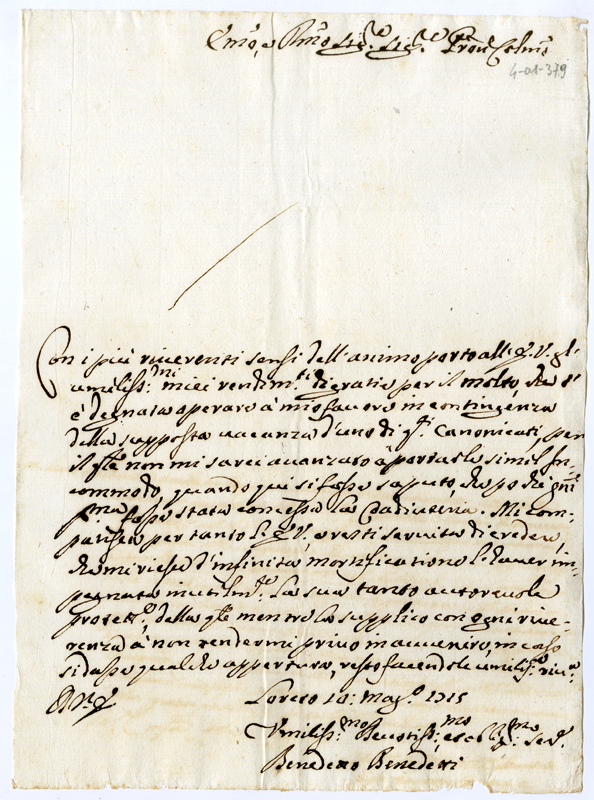 Emo, e Rmo Sig.re Sig.re Pron Colmo
4-01-379
Con i più riverenti sensi dell'animo porto all'E.V. gl'
umiliss:mi miei rendim:ti di gratie per il molto, che s'
è degnata operare à mio favore in contingenza
della supposta vacanza d'uno di q.ti Canonicati, per
il q̃le non mi sarei avanzato à portarle simil In-
commodo, quando qui si fosse saputo, che
fosse stata concessa la Coadiutoria. Mi com-
patisca per tanto l'E.V., e resti servita di credere,
che mi riesce d'infinita mortificatione l'haver im-
pegnata inutilm.te La sua tanto autorevole
protett.e, della q̃le mentre la supplico con ogni rive-
renza à non rendermi privo in avvenire, in caso
si dasse qualche appertura, resto facendole umiliss.a riv.a
Loreto 10: Mag.o 1715
Umiliss:mo Devotiss:mo, et obl:mo Ser.
Benedetto Benedetti